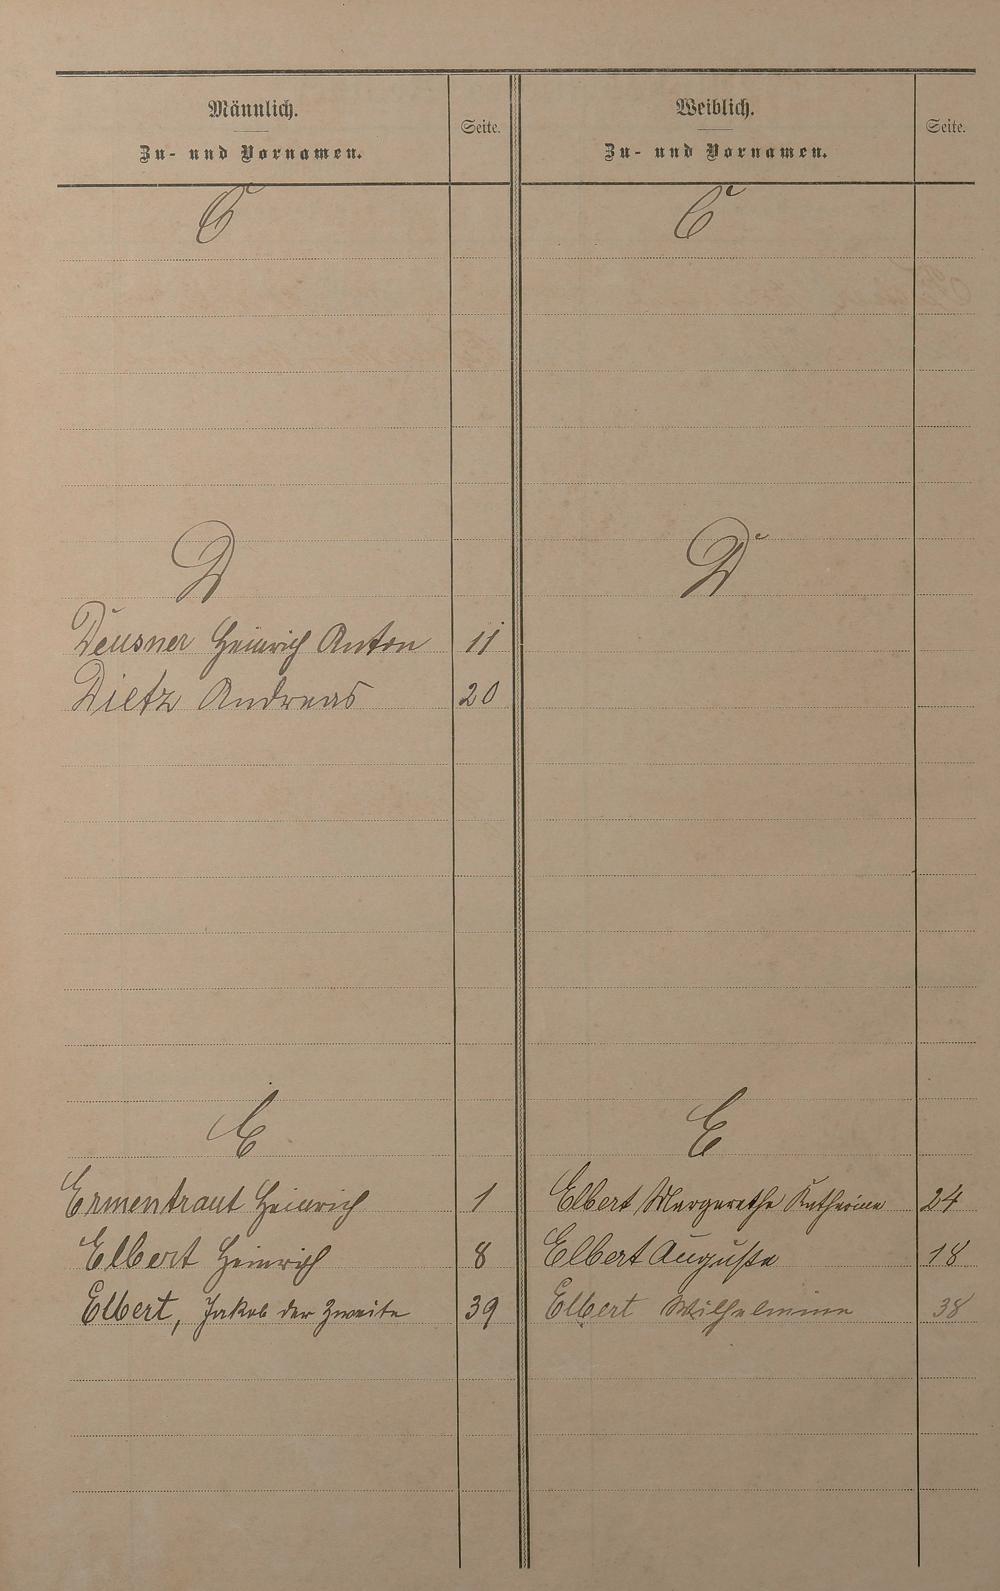 Männlich.
Zu- und Vornamen.
Seite.
Weiblich.
Zu- und Vornamen.
Seite.
C
C
D
D
Deusner Heinrich Anton 11
Dietz Andreas 20
E
E
Ermentraut Heinrich 1
Elbert Margarethe Katharine 24
Elbert Heinrich 8
Elbert Auguste 18
Elbert, Jakob der Zweite 39
Elbert Wilhelmine 38